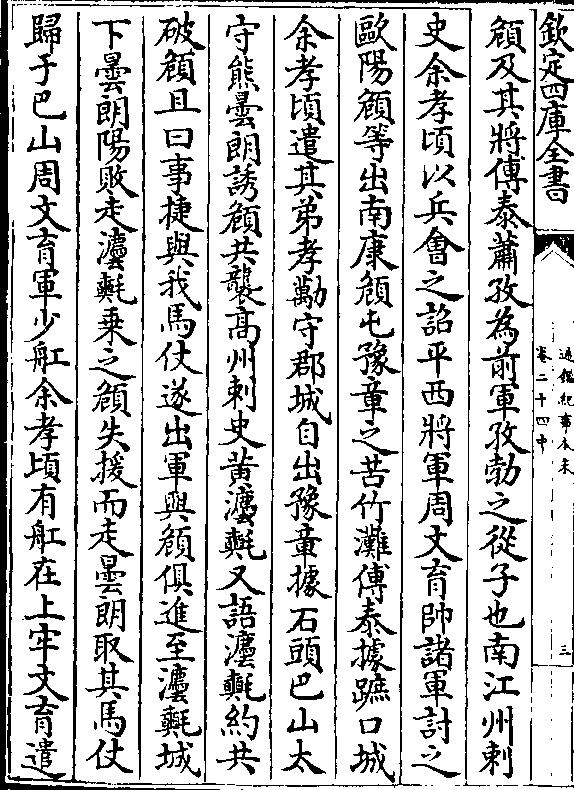 欽定四庫全書
通鑑紀事本末
卷二十四中
三
頠及其將傅泰蕭孜為前軍孜勃之從子也南江州刺
史余孝頃以兵會之詔平西將軍周文育帥諸軍討之
歐陽頠等出南康頠屯豫章之苦竹灘傅泰據蹠口城
余孝頃遣其弟孝勱守郡城自出豫章據石頭巴山太
守熊曇朗誘頠共襲髙州刺史黄灋𣰋又語灋𣰋約共
破頠且曰事捷與我馬仗遂出軍與頠俱進至灋𣰋城
下曇朗陽敗走灋𣰋乗之頠失援而走曇朗取其馬仗
歸于巴山周文育軍少舡余孝頃有舡在上牢文育遣